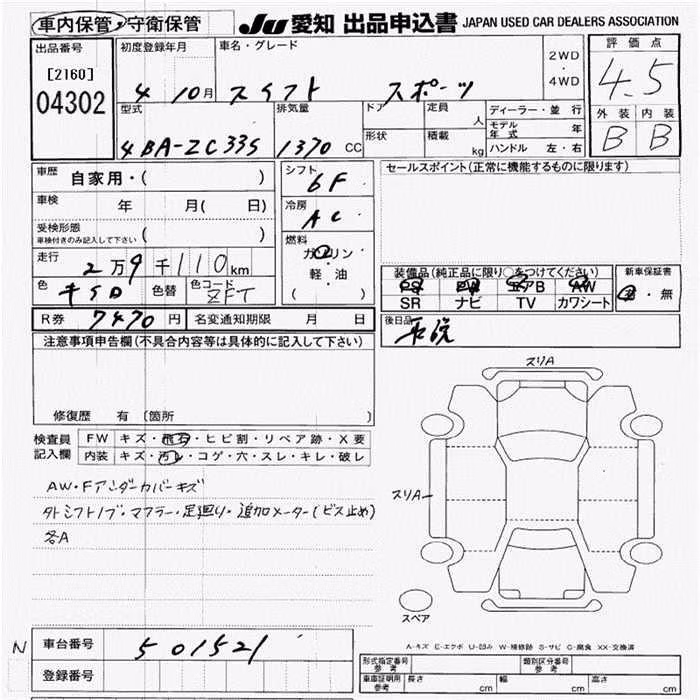 車内保管・守衛保管 JU 愛知 出品申込書 JAPAN USED CAR DEALERS ASSOCIATION
出品番号 初度登録年月 車名・グレード 2WD・4WD 評価点
[2160] 4 10月 スイフト スポーツ 4.5
04302 型式 排気量 ドア 定員 人 ディーラー・並行 外装 内装
4BA-ZC33S 1370 CC 形状 積載 kg モデル年式 年 B B
ハンドル 左・右
車歴 自家用・( ) シフト 6F セールスポイント(正常に機能するものに限ります)
車検 年 月( 日) 冷房 AC
受検形態 車検付きのみ記入して下さい ( )
走行 2万9千110km 燃料 ガソリン・軽・油 ( ) 装備品(純正品に限り○をつけてください) 新車保証書
色 色替 色コード ZFT PS PW エアB AW 有・無
SR ナビ TV カワシート
R券 7470円 名変通知期限 月 日 後日品
注意事項申告欄(不具合内容等は具体的に記入して下さい)
スリA
修復歴 有 〔箇所 〕
検査員記入欄 FW キズ・飛石・ヒビ割・リペア跡・X要
内装 キズ・汚レ・コゲ・穴・スレ・キレ・破レ
AW・Fアンダーカバーキズ
スリA
外シフトノブ・マフラー・足廻り・追加メーター(ビス止め)
各A
スペア
N 車台番号 501521
A-キズ E-エクボ U-凹み W-補修跡 S-サビ C-腐食 XX-交換済
登録番号 形式指定番号 参考 類別区分番号 参考
車庫証明用 参考 長さ cm 幅 cm 高さ cm